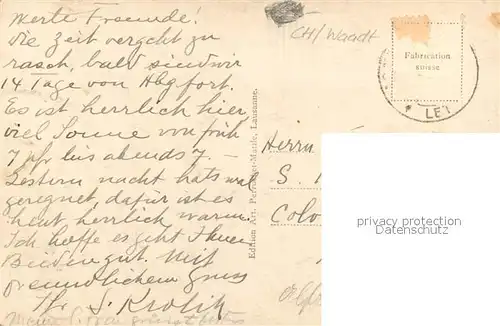 Werte Freunde!
die Zeit vergeht zu
rasch, bald sind wir
14 Tage von fort.
Es ist herrlich hier,
viel Sonne von früh
7 bis abends 7. –
Gestern nacht hats mal
geregnet, dafür ist es
heut herrlich warm.
Ich hoffe es geht Ihnen
Beiden gut. Mit
freundlichem Gruss
S. Krolik
Edition Art. Perrochet-Matile, Lausanne.
CH/Waadt
Fabrication
suisse
LEY
Herrn
S.
Colo
privacy protection
Datenschutz